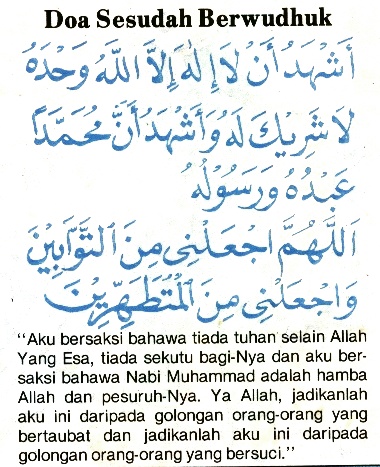 Doa Sesudah Berwudhuk
أَشْهَدُ أَنْ لَا إِلٰهَ إِلَّا اللهُ وَحْدَهُ
لَا شَرِيْكَ لَهُ وَأَشْهَدُ أَنَّ مُحَمَّدًا
عَبْدُهُ وَرَسُوْلُهُ
اَللّٰهُمَّ اجْعَلْنِى مِنَ التَّوَّابِيْنَ
وَاجْعَلْنِى مِنَ الْمُتَطَهِّرِيْنَ
“Aku bersaksi bahawa tiada tuhan selain Allah
Yang Esa, tiada sekutu bagi-Nya dan aku ber-
saksi bahawa Nabi Muhammad adalah hamba
Allah dan pesuruh-Nya. Ya Allah, jadikanlah
aku ini daripada golongan orang-orang yang
bertaubat dan jadikanlah aku ini daripada
golongan orang-orang yang bersuci.”